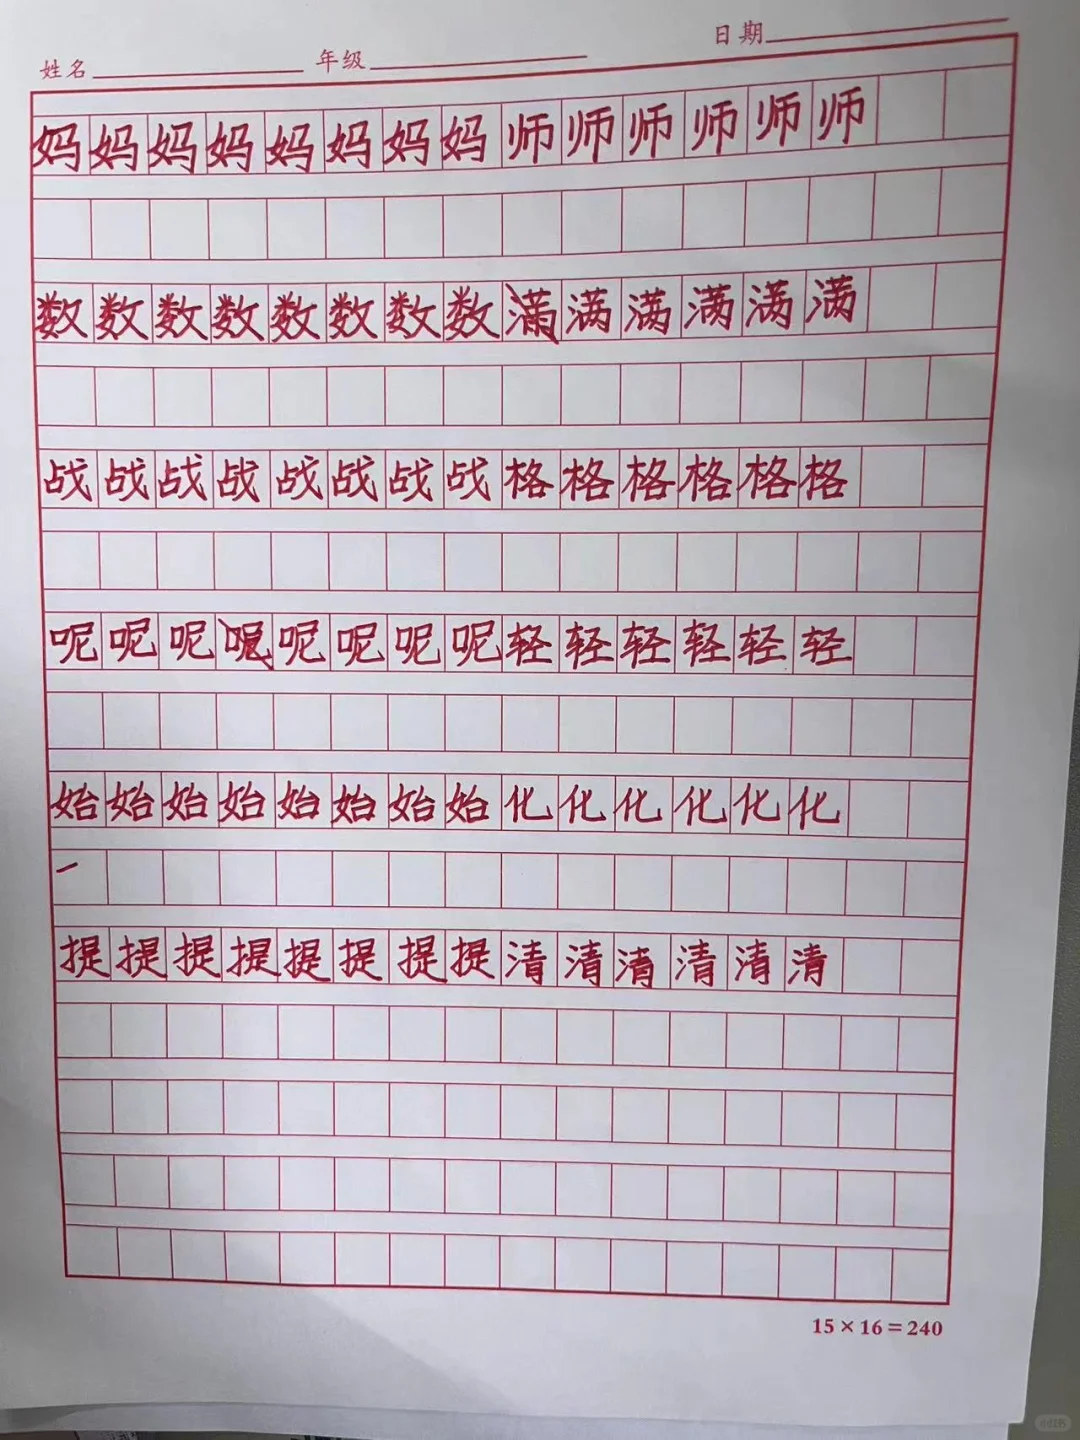 姓名 年级 日期
妈妈妈妈妈妈妈妈师师师师师师
数数数数数数数数满满满满满满
战战战战战战战战格格格格格格
呢呢呢呢呢呢呢呢轻轻轻轻轻轻
始始始始始始始始化化化化化化
提提提提提提提提清清清清清清
15×16=240